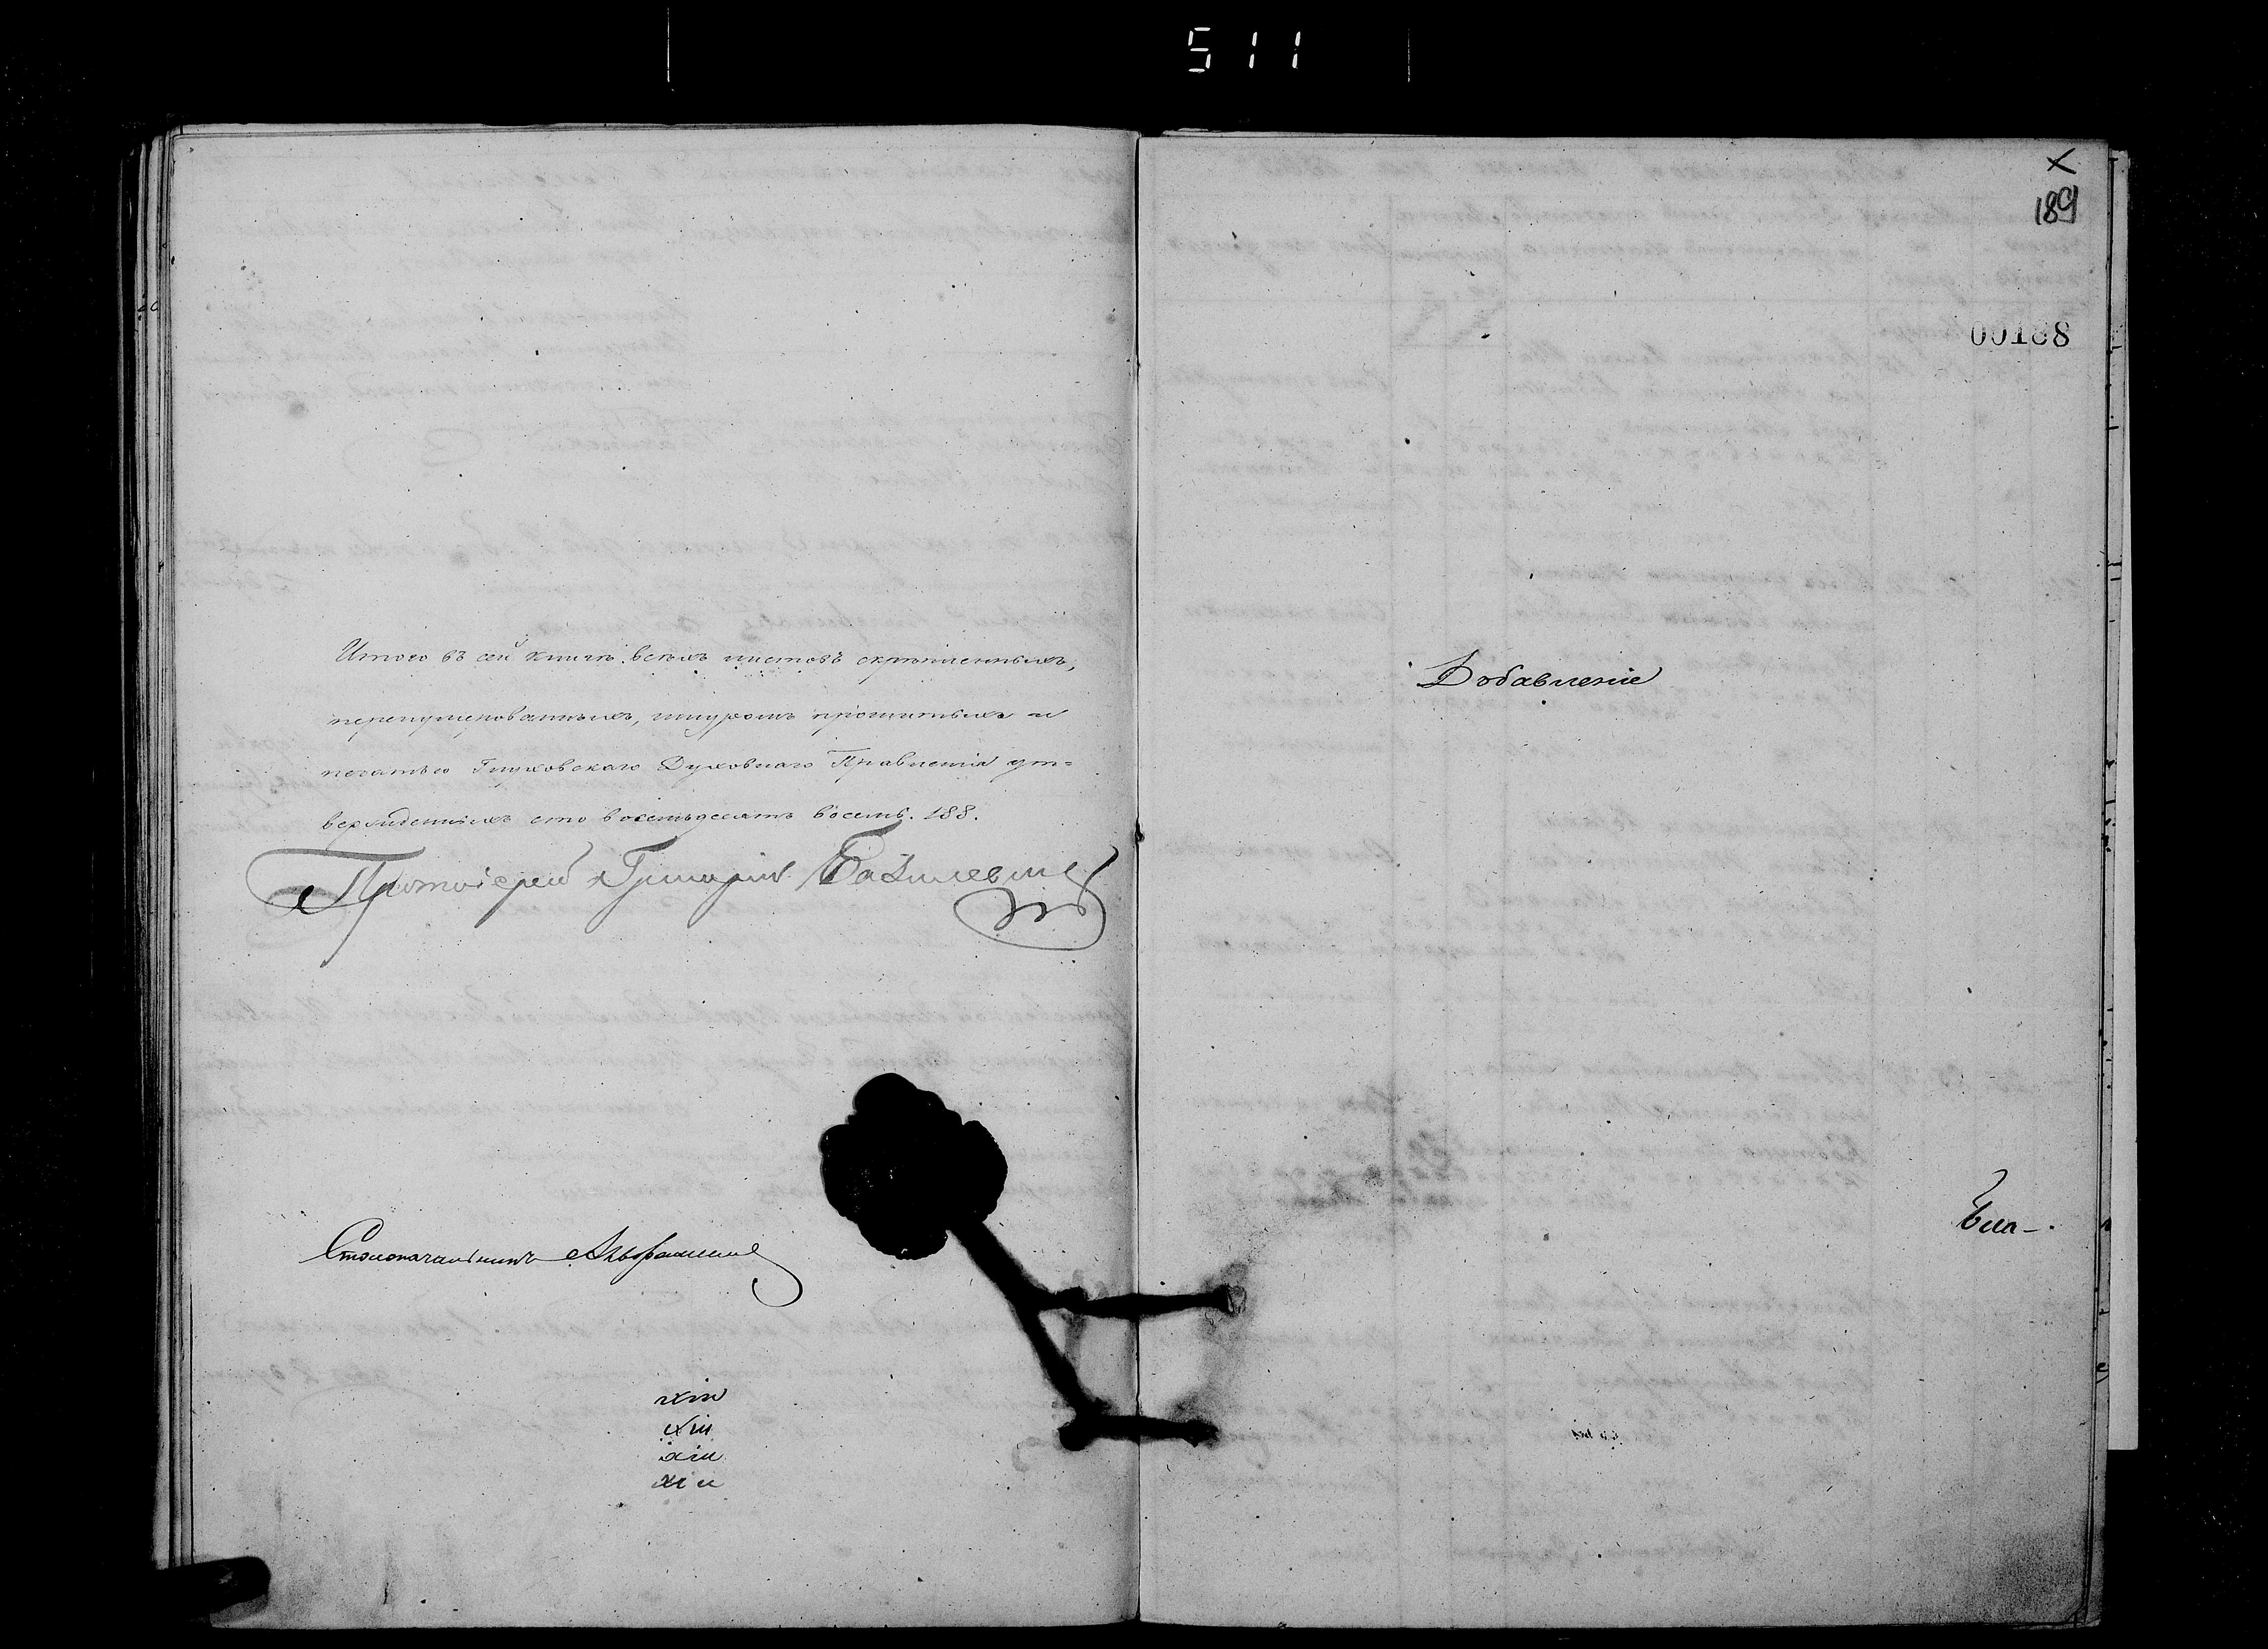 511
Итого въ сей книгѣ всѣхъ листовъ скрѣпленныхъ,
перенумерованныхъ, шнуромъ прошитыхъ и
печатью Глуховскаго Духовнаго Правленія ут=
вержденныхъ сто восемьдесятъ восемь. 188.
Протоіерей Григорій Базилевичъ
Столоначальникъ
189
00188
Добавленіе